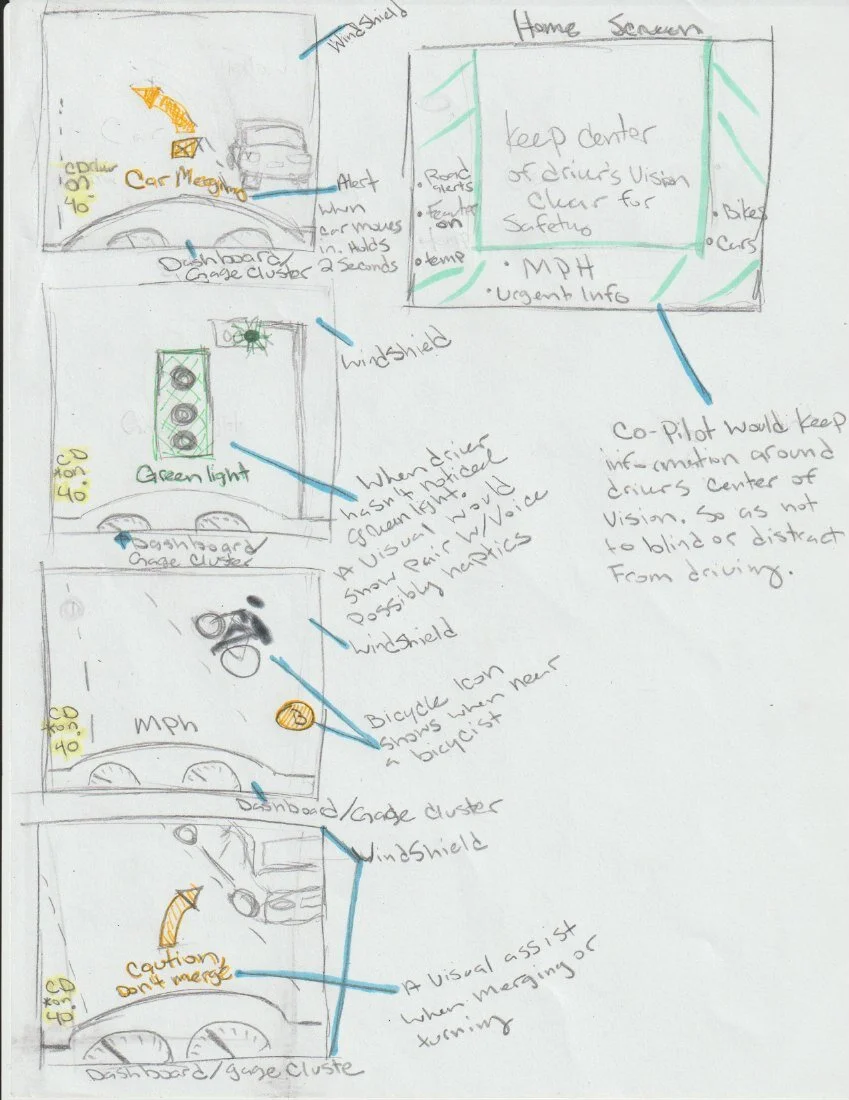 Windshield
Car Merging
CD
on
40°
Alert
when
car moves
in. Holds
2 Seconds
Dashboard/
Gage Cluster
Home Screen
Keep Center
of driver's Vision
Clear for
Safety
• Road
alerts
on
• temp
• Bikes
• Cars
• MPH
• Urgent Info
Co-Pilot would keep
information around
drivers center of
Vision. So as not
to blind or distract
From driving.
Windshield
Green light
CD
*on.
40°
When driver
hasn't noticed
green light.
A Visual would
show pair w/Voice
Possibly haptics
Dashboard/
Gage Cluster
Windshield
B
MPh
CD
*on.
40°
Bicycle Icon
shows when near
a bicyclist
Dashboard/Gage Cluster
Windshield
Caution,
Don't merge
CD
*on.
40°
A Visual assist
when merging or
turning
Dashboard/gage Cluste